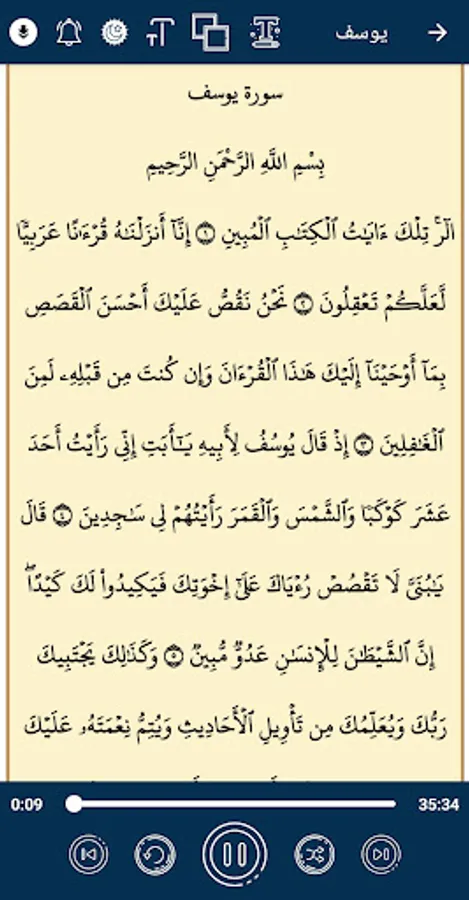 يوسف
سورة يوسف
بِسْمِ اللَّهِ الرَّحْمَنِ الرَّحِيمِ
الٓرۚ تِلْكَ ءَايَٰتُ ٱلْكِتَٰبِ ٱلْمُبِينِ ۝١ إِنَّآ أَنزَلْنَٰهُ قُرْءَٰنًا عَرَبِيًّا
لَّعَلَّكُمْ تَعْقِلُونَ ۝٢ نَحْنُ نَقُصُّ عَلَيْكَ أَحْسَنَ ٱلْقَصَصِ
بِمَآ أَوْحَيْنَآ إِلَيْكَ هَٰذَا ٱلْقُرْءَانَ وَإِن كُنتَ مِن قَبْلِهِۦ لَمِنَ
ٱلْغَٰفِلِينَ ۝٣ إِذْ قَالَ يُوسُفُ لِأَبِيهِ يَٰٓأَبَتِ إِنِّى رَأَيْتُ أَحَدَ
عَشَرَ كَوْكَبًا وَٱلشَّمْسَ وَٱلْقَمَرَ رَأَيْتُهُمْ لِى سَٰجِدِينَ ۝٤ قَالَ
يَٰبُنَىَّ لَا تَقْصُصْ رُءْيَاكَ عَلَىٰٓ إِخْوَتِكَ فَيَكِيدُوا۟ لَكَ كَيْدًاۖ
إِنَّ ٱلشَّيْطَٰنَ لِلْإِنسَٰنِ عَدُوٌّ مُّبِينٌ ۝٥ وَكَذَٰلِكَ يَجْتَبِيكَ
رَبُّكَ وَيُعَلِّمُكَ مِن تَأْوِيلِ ٱلْأَحَادِيثِ وَيُتِمُّ نِعْمَتَهُۥ عَلَيْكَ
0:09 35:34